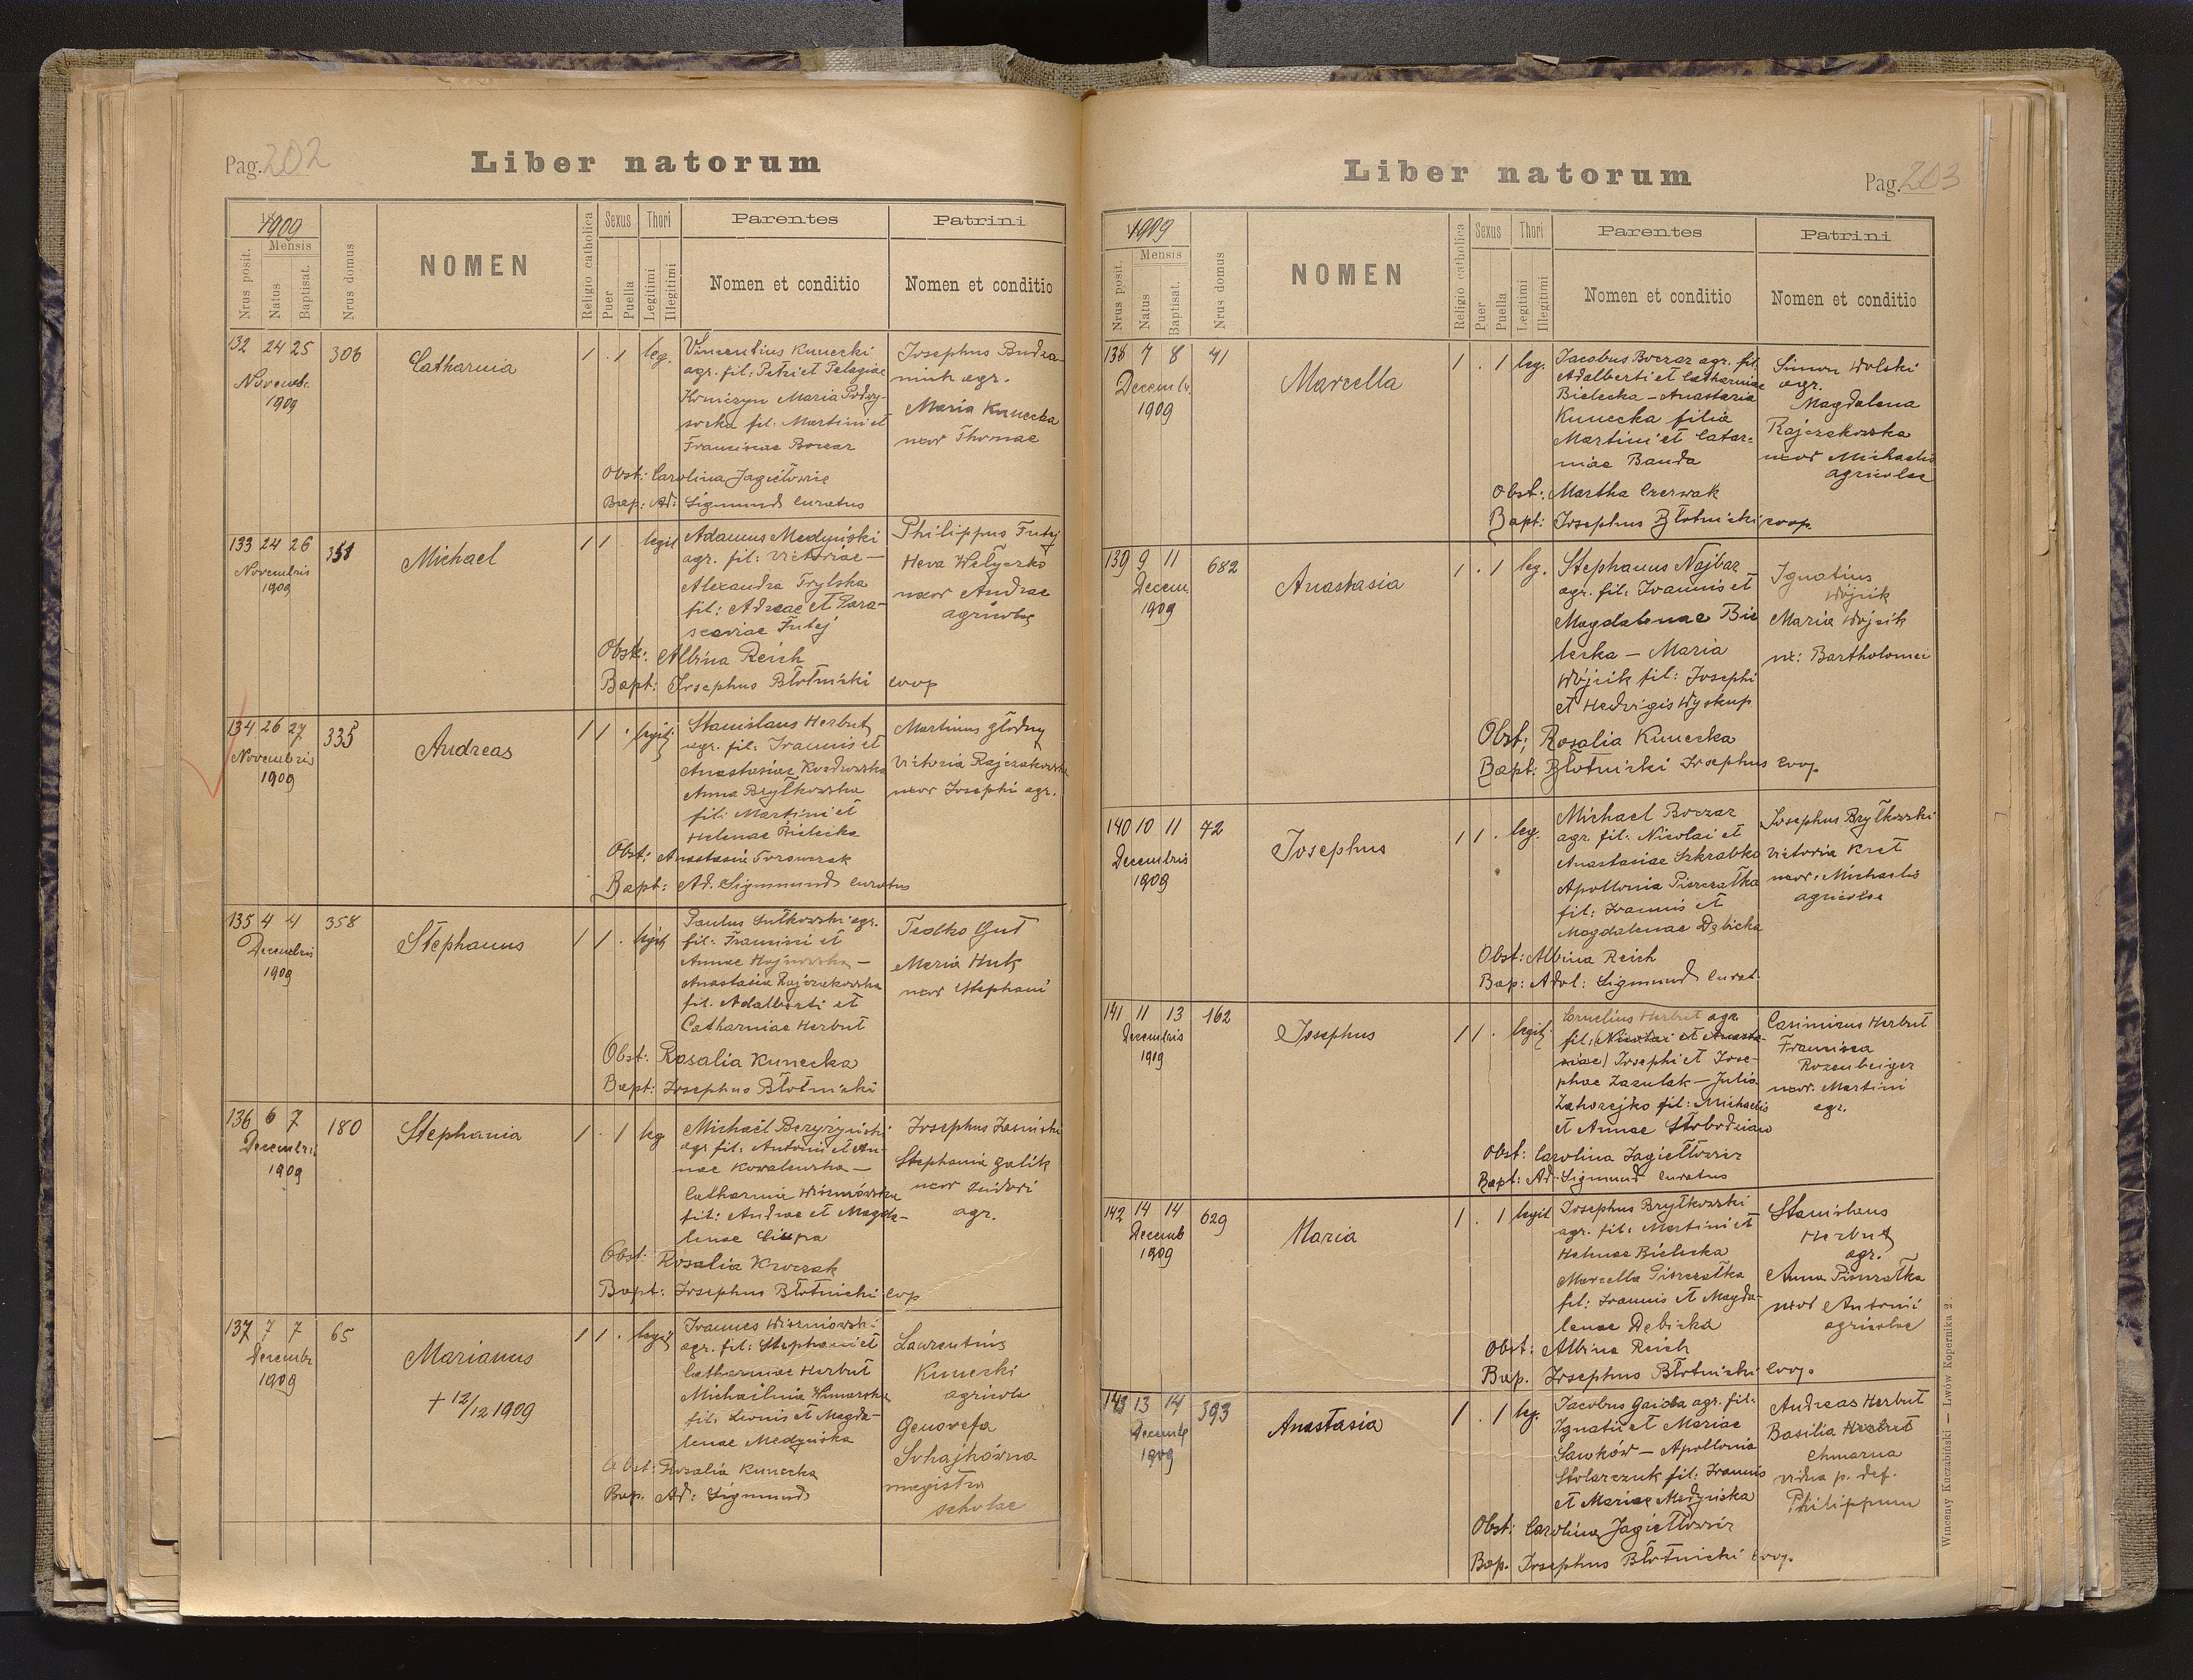 Pag. 202
Liber natorum
1909
Mensis
Nrus posit.
Natus
Baptisat.
Nrus domus
NOMEN
Religio catholica
Sexus
Puer
Puella
Thori
Legitimi
Illegitimi
Parentes
Nomen et conditio
Patrini
Nomen et conditio
132 24 25 306
Novemb.
1909
Catharina
1 . 1 leg.
Vincentius Kunecki
agr. fil: Petri et Pelagiae
Maria Podwy-
socka fil: Martini et
Franciscae Boczar
Josephus
agr.
Maria Kunecka
uxor Thomae
Obst: Carolina Jagiełłowicz
Bap: Ad: Sigmund Curatus
133 24 26 351
Novembris
1909
Michael
1 1 . legit
Adamus Medyński
agr. fil: Victoriae —
Alexandra Trylska
fil: Adreae et Para-
sceviae Futej
Philippus Futej
Heva Wełyczko
uxor Andrae
agricolae
Obst: Albina Reich
Bapt: Josephus Błotnicki coop
134 26 27 335
Novembris
1909
Andreas
1 1 . legit
Stanislaus Herbut
agr. fil: Joannis et
Anastasiae
Anna Bryłkowska
fil: Martini et
Helenae Bielecka
Martinus Głodny
Victoria Rajczakowska
uxor Josephi agr.
Obst: Anastasia
Bapt: Ad. Sigmund Curatus
135 4 4 358
Decembris
1909
Stephanus
1 1 . legit
Paulus Sułkowski agr.
fil: Francisci et
Annae
Anastasia Rajczakowska
fil. Adalberti et
Catharinae Herbut
Fedko Gut
Maria Huk
uxor Stephani
Obst: Rosalia Kunecka
Bapt: Josephus Błotnicki
136 6 7 180
Decembris
1909
Stephania
1 . 1 leg
Michaël
agr fil: Antoni et An-
nae Kowalewska —
Catharina Wiszniowska
fil: Andrae et Magda-
lenae
Josephus
Stephania Galik
uxor Isidori
agr.
Obst: Rosalia Kroczak
Bapt: Josephus Błotnicki coop
137 7 7 65
Decembr
1909
Marianus
+ 12/12 1909
1 1 . legit
Joannes Wiszniowski
agr. fil: Stephani et
Catharinae Herbut
Michaëlina Winiarska
fil: Leonis et Magda-
lenae Medyńska
Laurentius
Kunecki
agricola
Genovefa
magistra
scholae
Obst: Rosalia Kunecka
Bap. Ad: Sigmund
Liber natorum
Pag. 203
1909
Mensis
Nrus posit.
Natus
Baptisat.
Nrus domus
NOMEN
Religio catholica
Sexus
Puer
Puella
Thori
Legitimi
Illegitimi
Parentes
Nomen et conditio
Patrini
Nomen et conditio
138 7 8 41
Decemb.
1909
Marcella
1 . 1 leg.
Jacobus Boczar agr. fil.
Adalberti et Catharinae
Bielecka — Anastasia
Kunecka filia
Martini et Catar=
inae Banda
Simon Wolski
agr.
Magdalena
Rajczakowska
uxor Michaelis
agricolae
Obst: Martha Czerwak
Bapt: Josephus Błotnicki coop.
139 9 11 682
Decem.
1909
Anastasia
1 . 1 leg.
Stephanus Najbar
agr. fil: Joannis et
Magdalenae Bie
lecka — Maria
Wójcik fil: Josephi
et Hedvigis Wyskup
Ignatius
Wójcik
Maria Wójcik
ux: Bartholomei
Obst; Rosalia Kunecka
Bapt: Błotnicki Josephus Coop
140 10 11 72
Decembris
1909
Josephus
1 1 . leg.
Michael Boczar
agr. fil: Nicolai et
Anastasiae Szkrabka
Apollonia Piszczałka
fil: Joannis et
Magdalenae Dębicka
Josephus Bryłkowski
Victoria Kret
uxor: Michaelis
agricolae
Obst: Albina Reich
Bap: Adol: Sigmund Curat.
141 11 13 162
Decembris
1909
Josephus
1 1 . legit
Cornelius Herbut agr.
fil: (Nicolai et Anasta-
siae) Josephi et Jose-
phae Zazulak — Julia
Zahorejko fil: Michaelis
et Annae
Casimirus Herbut
Francisca
Rozenbeiger
uxor. Martini
agr.
Obst: Carolina Jagiełłowicz
Bapt: Ad: Sigmund Curatus
142 14 14 629
Decemb
1909
Maria
1 . 1 legit
Josephus Bryłkowski
agr. fil: Martini et
Helenae Bielecka
Marcella Piszczałka
fil: Joannis et Magda-
lenae Dębicka
Stanislaus
Herbut
agr.
Anna Piszczałka
uxor Antonii
agricolae
Obst: Albina Reich
Bap. Josephus Błotnicki Coop.
143 13 14 393
Decemb
1909
Anastasia
1 . 1 leg.
Jacobus Gaida agr. fil:
Ignatii et Mariae
Sawków — Apollonia
Stolarczuk fil: Joannis
et Mariae Medyńska
Andreas Herbut
Basilia
Chmarna
vidua p. def.
Philippum
Obst: Carolina Jagiełłowicz
Bap. Josephus Błotnicki Coop.
Wincenty Kuczabiński — Lwów Kopernika 2.